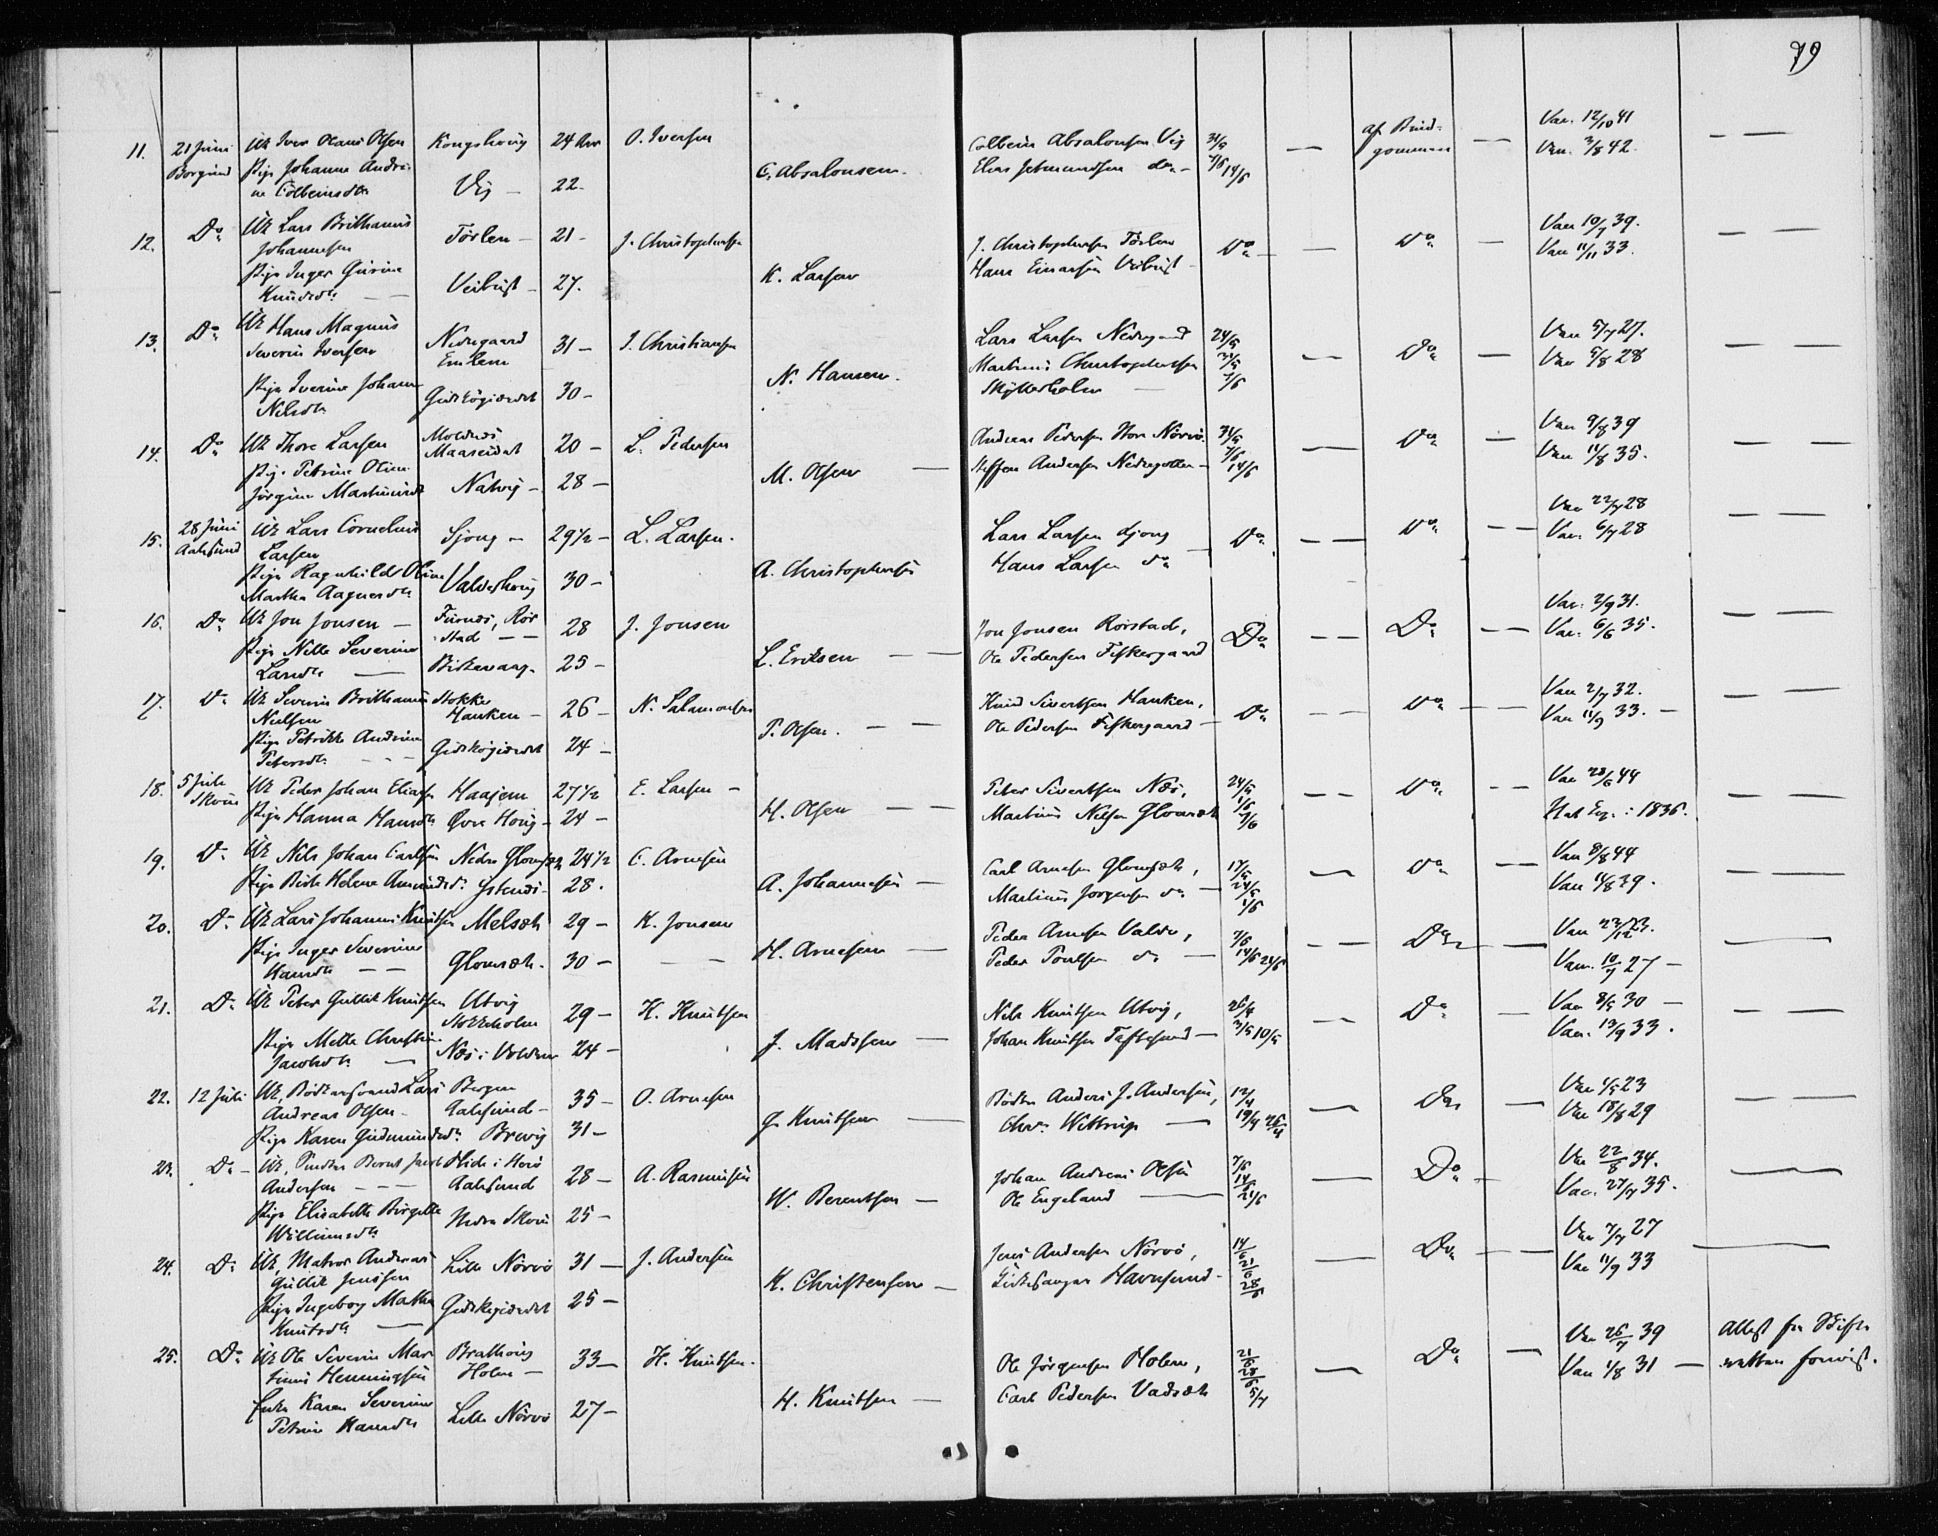 79
11. 21 Juni Uk Iver Olaus Olsen Kongshoug 24 Aar O. Iversen Colbein Absalonsen Vig 31/5 — af Brud- — Vac. 12/10 41 — —
Borgund Pige Johanne Andri- Vig — 22 C. Absalonsen. Elias do — 7/6 14/6 gommen Vac. 42.
ne Colbeinsdtr
12. Do Uk Lars Brithanius Törlen — 21 — J. Christophersen J. Christophersen Törlen Do — — Do — Vac 10/7 39. — —
Johannesen Hans Einarsen Veibust Vac 11/11 33.
Pige Inger Gurine Veibust — 27. K. Larsen
Knudsdtr — —
13. Do Uk Hans Magnus Nedregaard 31 — I. Christiansen Lars Larsen Nedregaard 24/5 — Do — Vac 5/7 27. — —
Severin Iversen Emlem Martinus Christophersen 31/5 Vac 5/8 28
Pige Iverine Johanne Gidskögierdet 30 — N. Hansen. Skytterholm — 7/6
Nilsdtr
14. Do Uk Thore Larsen Moldnæs 20 — L. Pedersen Andreas Pedersen Store Nörvö. 31/5 — Do — Vac 9/8 39 — —
Maaseidet 7/6
Pige Petrine Oline Nalvig — 28 — M. Olsen — Steffen Andersen — 14/6 Vac 11/8 35.
Jörgine Martinusdtr
15. 28 Juni Uk Lars Cornelius Gjong — 29½ — L. Larsen. Lars Larsen Gjong Do — — Do — — Vac 22/7 28 — —
Aalesund Larsen Hans Larsen do — Vac. 6/7 28
Pige Ragnhild Oline Valderhoug 30 — A. Christophersen
Martha Aagesdtr
16. Do Uk Jon Jonsen — Furnæs, Rör 28 J. Jonsen Jon Jonsen Rörstad, Do — — Do — — Vac. 2/9 31. — —
stad — — Vac. 6/6 35.
Pige Nille Severine Bikevaag. 25 — L. Eriksen — — Ole Pedersen Fiskergaard
Larsdtr —
17. Do Uk Severin Brithanius Stokke 26 — N. Salamonsen Knud Sivertsen Hanken, Do — — Do — — Vac 2/7 32. — —
Nielsen Hanken — Ole Pedersen Fiskergaard — Vac 11/9 33. —
Pige Petrikke Andrine Gidskögierdet 24 — P. Olsen. — —
Petersdtr — — —
18. 5 Juli Uk Peder Johan Eliasen Haajem 27½ E. Larsen — Peter Sivertsen Næs, 24/5 — — Do — — Vac 23/6 44 — —
Skoue Pige Hanna Hansdtr Øvre Houg — 24 — H. Olsen — — Martinus Nilsen Glomset 1/6 7/6 Nat. Exp. : 1836.
19. Do Uk Nils Johan Carlsen Nedre Glomset 24½ C. Arnesen Carl Arnesen Glomset, 17/5 — Do — — Vac 8/8 44 — —
Pige Birte Helene Amundsdtr Ystenæs — 28. A. Johannesen — Martinus Jörgensen do — 24/5 1/6 Vac 14/8 39.
20. Do Uk Lars Johannes Knutsen Melsæt 29 — K. Jonsen Peder Arnesen Valde, 7/6 — — Do — Vac 22/12 23. —
Pige Inger Severine Glomset. 30 — — — H. Arnesen — Peder Poulsen do — 14/6 24/6 Vac. 10/7 27 —
Hansdtr — —
21. Do Uk Peter Gullik Knutsen Utvig 29 — K. Knutsen Nils Knutsen Utvig, 26/4 — Do — Vac 8/5 30 — — —
Stokkeholm
Pige Mette Christine Næs i Volden 24 — J. Madssen — Johan Knutsen Taftesund — 3/5 10/5 Vac. 13/9 33.
Jacobsdtr —
22. 12 Juli Uk, Bödkersvend Lars Bergen 35 — O. Arnesen Bödker Anders J. Andersen, 12/4 — Do — Vac 1/5 23 — —
Andreas Olsen — Aalesund — Chr. Wittrup — 19/4 26/4 Vac 18/8 29
Pige Karen Gudmundsdtr Brevig 31 — G. Knutsen —
23. Do — Uk, Snedker Bernt Jacob Hide i Herö 28 — A. Rasmusen Johan Andreas Olsen 7/6 — Do — Vac 22/8 34. —
Andersen — — — Aalesund 14/6 Vac. 27/7 35.
Pige Elisabeth Birgitte Nedre Skoue 25 — W. Berentsen — Ole Engeland — 21/6
Williamsdtr
24. Do Uk, Matros Andreas Lille Nörvö 31 — J. Andersen Jens Andersen Nörvö, 14/6 — Do — — Vac 7/7 27 —
Gullik Jensen Kirkesanger Havnsund — 21/6 28/6 Vac 11/9 33
Pige Ingeborg Marthe Gidskegierdet 25 — K. Christensen —
Knutsdtr —
25. Do Uk Ole Severin Mar- Brathoug 33 — H. Knutsen. Ole Jörgensen Holen, 21/6 — Do — Vac 26/7 39 Attest fra Skifte-
tinus Henningsen Holm — 28/6 Vac 1/8 31 — retten forevist.
Enke Karen Severine Lille Nörvö 27 — H. Knutsen — Carl Pedersen Vadset 5/7
Petrine Hansdtr